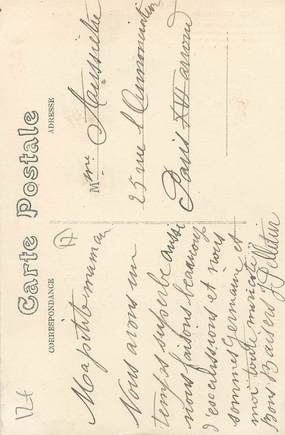 Carte Postale
CORRESPONDANCE
ADRESSE
Ma petite maman
Nous avons un
temps superbe aussi
nous faisons beaucoup
d'excursions et nous
sommes Germaine et
moi toute
Bons Baisers J Pelletier
Mme
25 rue l'Annonciation
Paris XVI arrond